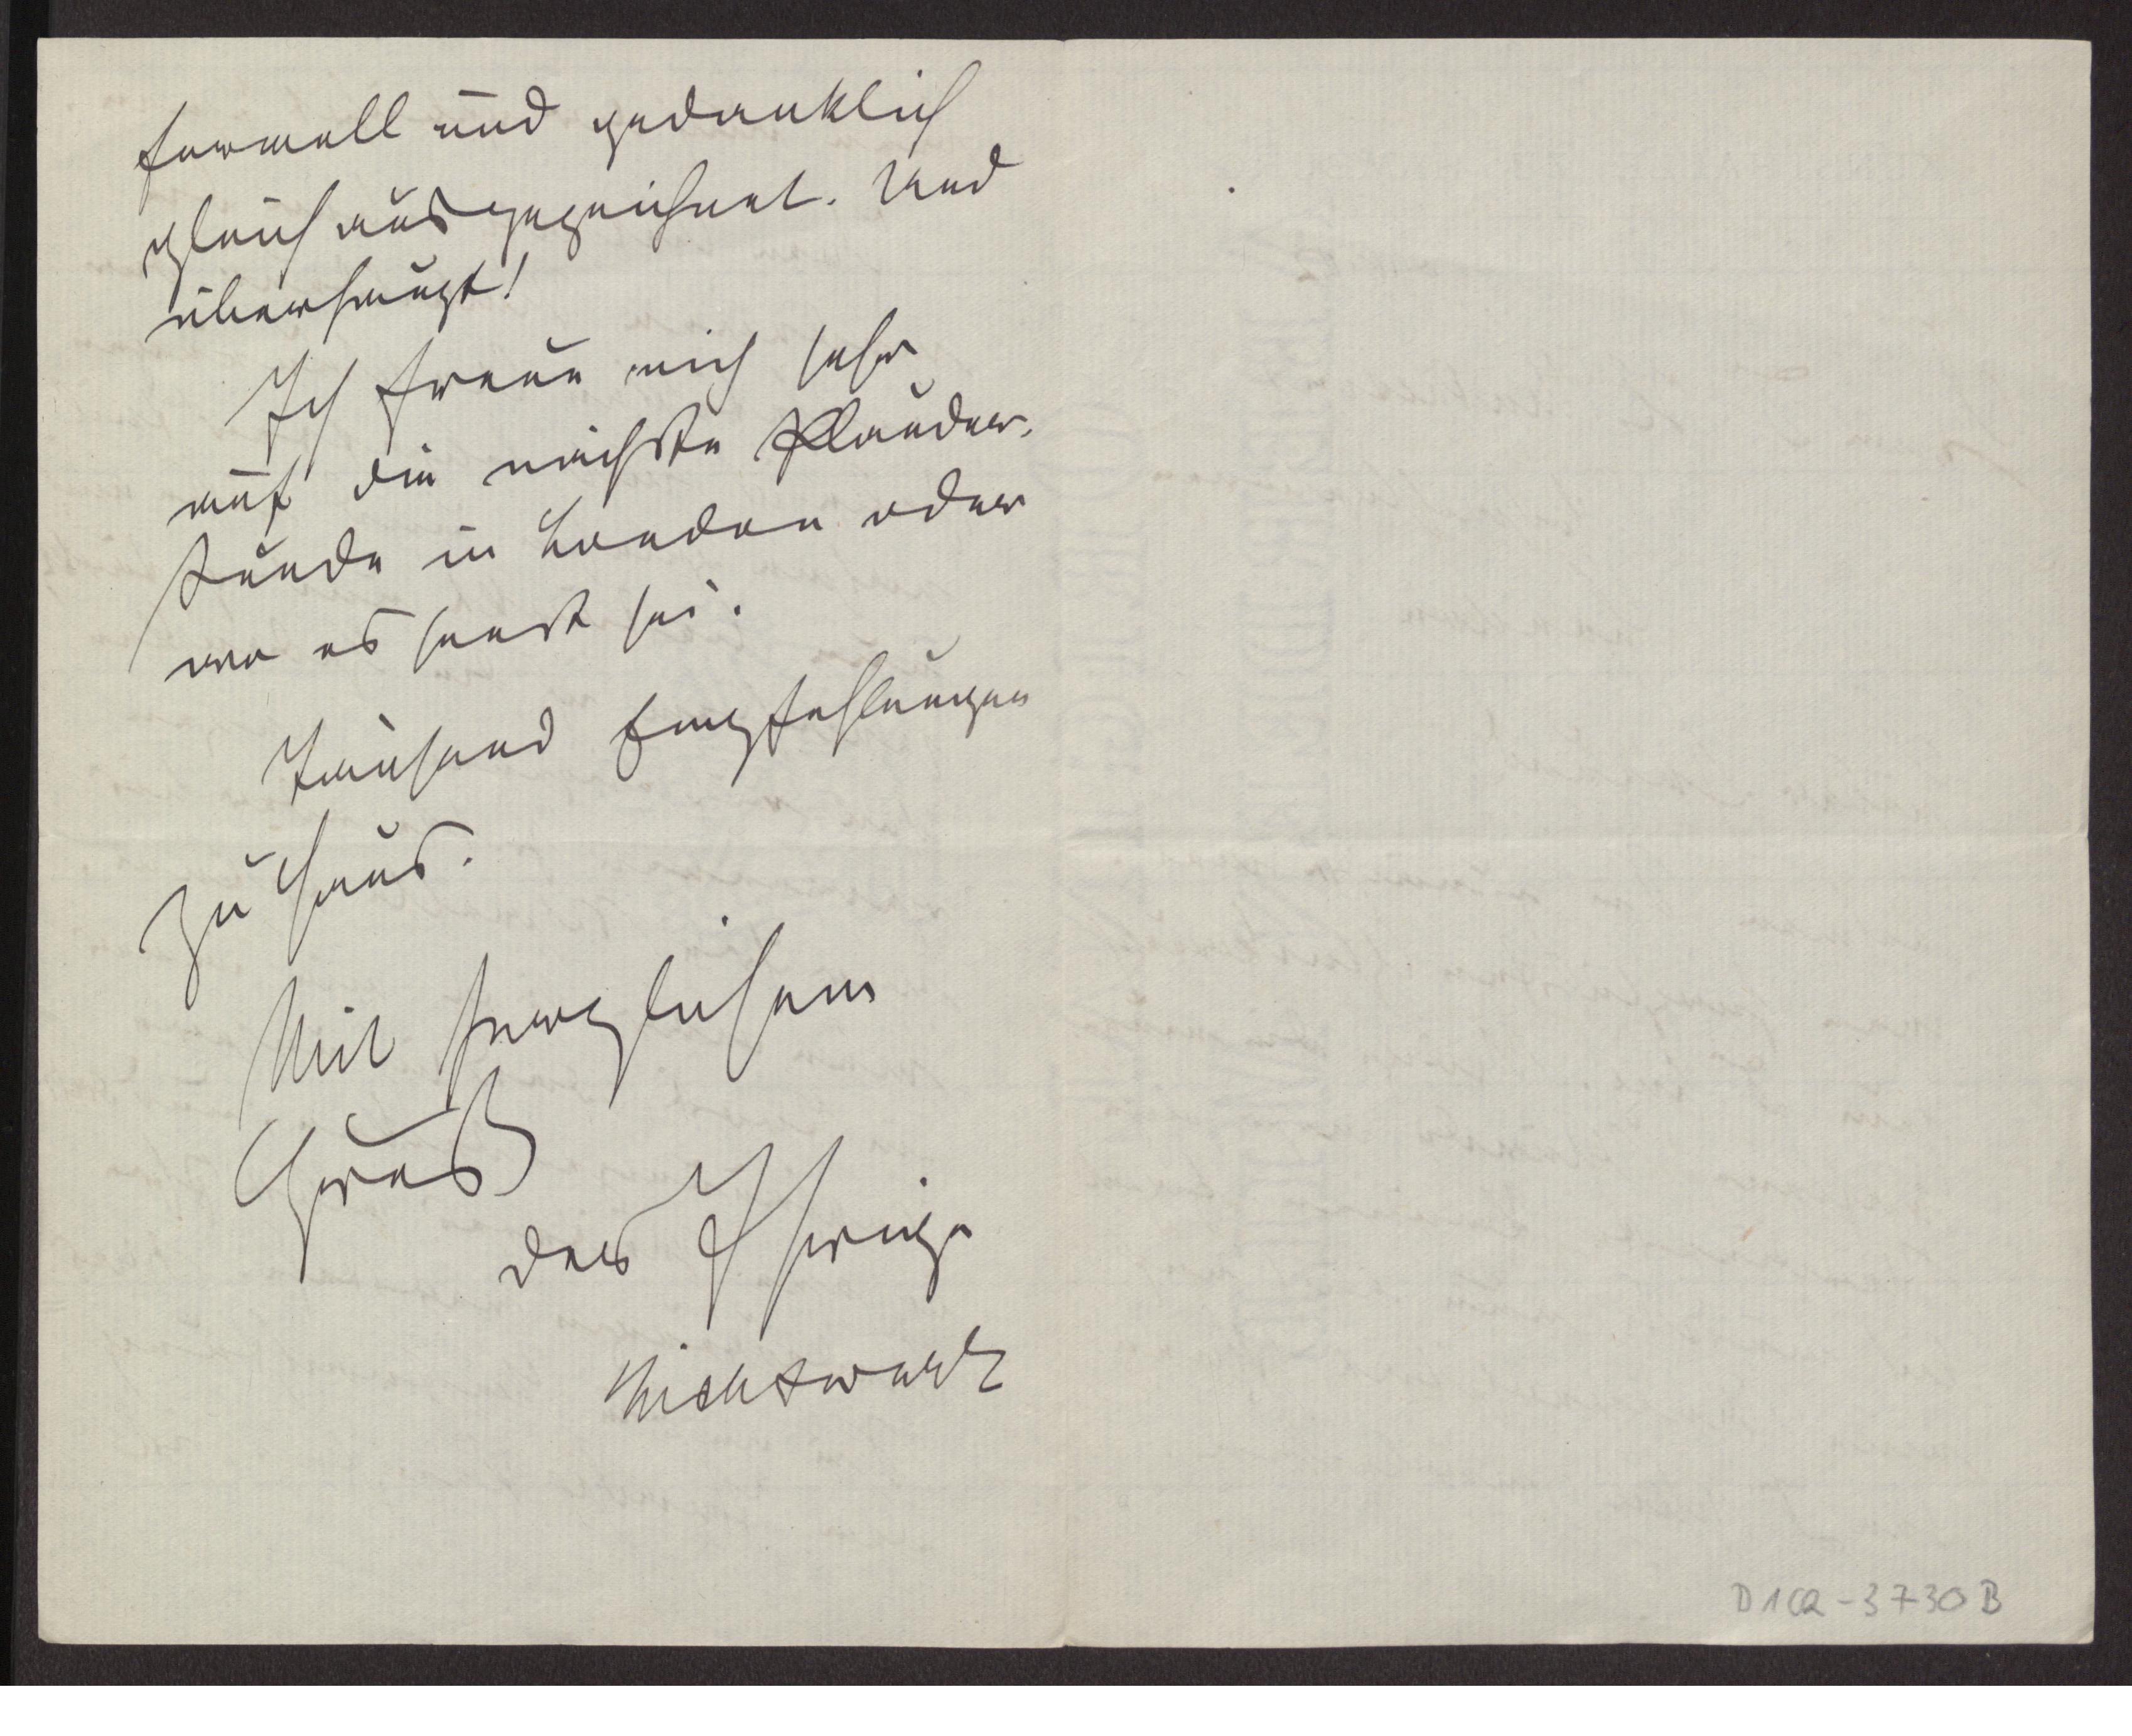 formell und gedanklich
gleich ausgezeichnet. Und
überhaupt!
Ich freue mich sehr
auf die nächste Plauder-
stunde in London oder
wo es sonst sei.
Tausend Empfehlungen
zu Haus.
Mit herzlichem
Gruß
der Ihrige
Lichtwark
D 102-3730 B